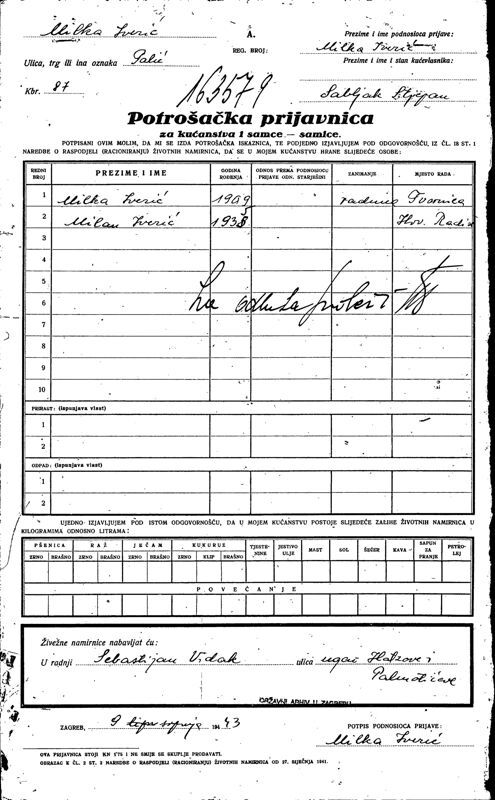 Milka Iverić
A.
Prezime i ime podnosioca prijave:
REG. BROJ:
Milka Iverić
Ulica, trg ili ina oznaka Palić
Prezime i ime i stan kućevlasnika:
Kbr. 87
163579
Sabljak Stjepan
Potrošačka prijavnica
za kućanstva i samce — samice.
POTPISANI OVIM MOLIM, DA MI SE IZDA POTROŠAČKA ISKAZNICA, TE PODJEDNO IZJAVLJUJEM POD ODGOVORNOŠĆU, IZ ČL. 18 ST. 1
NAREDBE O RASPODJELI (RACIONIRANJU) ŽIVOTNIH NAMIRNICA, DA SE U MOJEM KUĆANSTVU HRANE SLIJEDEĆE OSOBE:
REDNI BROJ PREZIME I IME GODINA ROĐENJA ODNOS PREMA PODNOSIOCU PRIJAVE ODN. STARJEŠINI ZANIMANJE MJESTO RADA
1 Milka Iverić 1909 radnica Tvornica
2 Milan Iverić 1938 Hrv. Radiša
3
4
5
6
7
8
9
10
PRIRAST: (ispunjava vlast)
1
2
OTPAD: (ispunjava vlast)
1
2
UJEDNO IZJAVLJUJEM POD ISTOM ODGOVORNOŠĆU, DA U MOJEM KUĆANSTVU POSTOJE SLIJEDEĆE ZALIHE ŽIVOTNIH NAMIRNICA U
KILOGRAMIMA ODNOSNO LITRAMA:
PŠENICA RAŽ JEČAM KUKURUZ TJESTENINE JESTIVO ULJE MAST SOL ŠEĆER KAVA SAPUN ZA PRANJE PETROLEJ
ZRNO BRAŠNO ZRNO BRAŠNO ZRNO BRAŠNO ZRNO KLIP BRAŠNO
POVEĆANJE
Živežne namirnice nabavljat ću:
U radnji Sebastijan Vidak ulica ugao Hatzove i
Palmotićeve
DRŽAVNI ARHIV U ZAGREBU
ZAGREB, 9 194 43
POTPIS PODNOSIOCA PRIJAVE:
Milka Iverić
OVA PRIJAVNICA STOJI KN 0.75 I NE SMIJE SE SKUPLJE PRODAVATI.
OBRAZAC K ČL. 2 ST. 2 NAREDBE O RASPODJELI (RACIONIRANJU) ŽIVOTNIH NAMIRNICA OD 27. SIJEČNJA 1941.